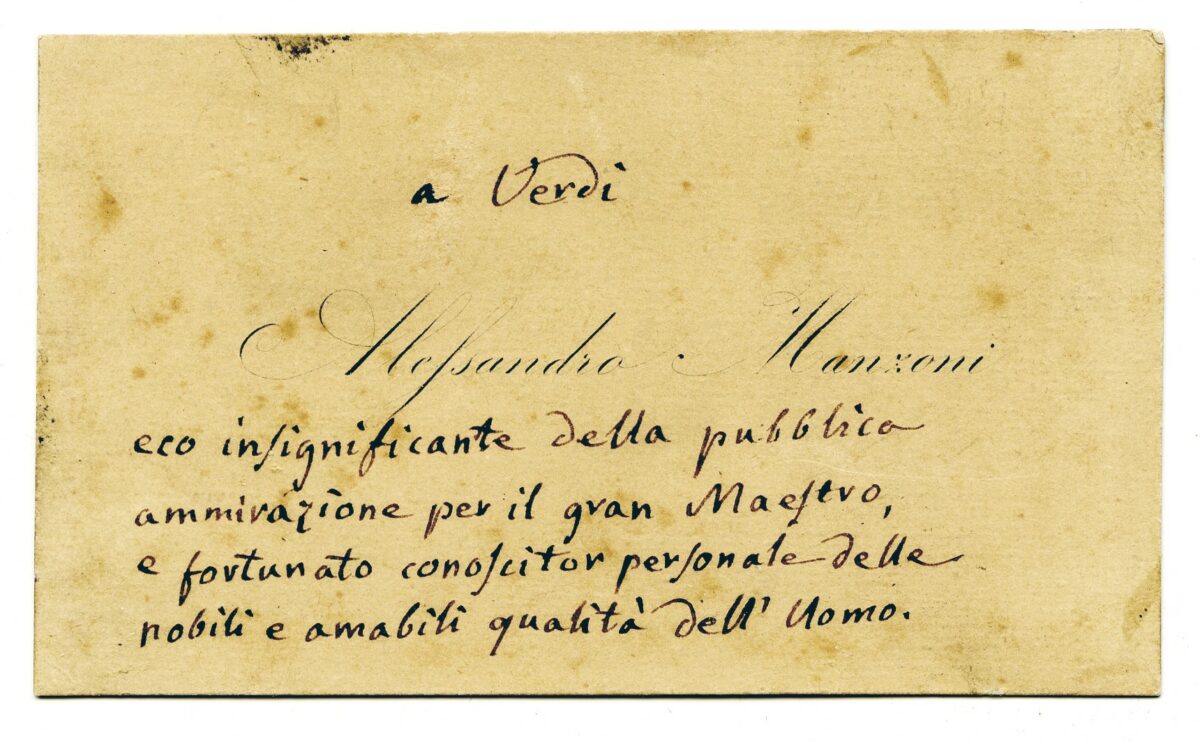 a Verdi
Alessandro Manzoni
eco insignificante della pubblica
ammirazione per il gran Maestro,
e fortunato conoscitor personale delle
nobili e amabili qualità dell' Uomo.